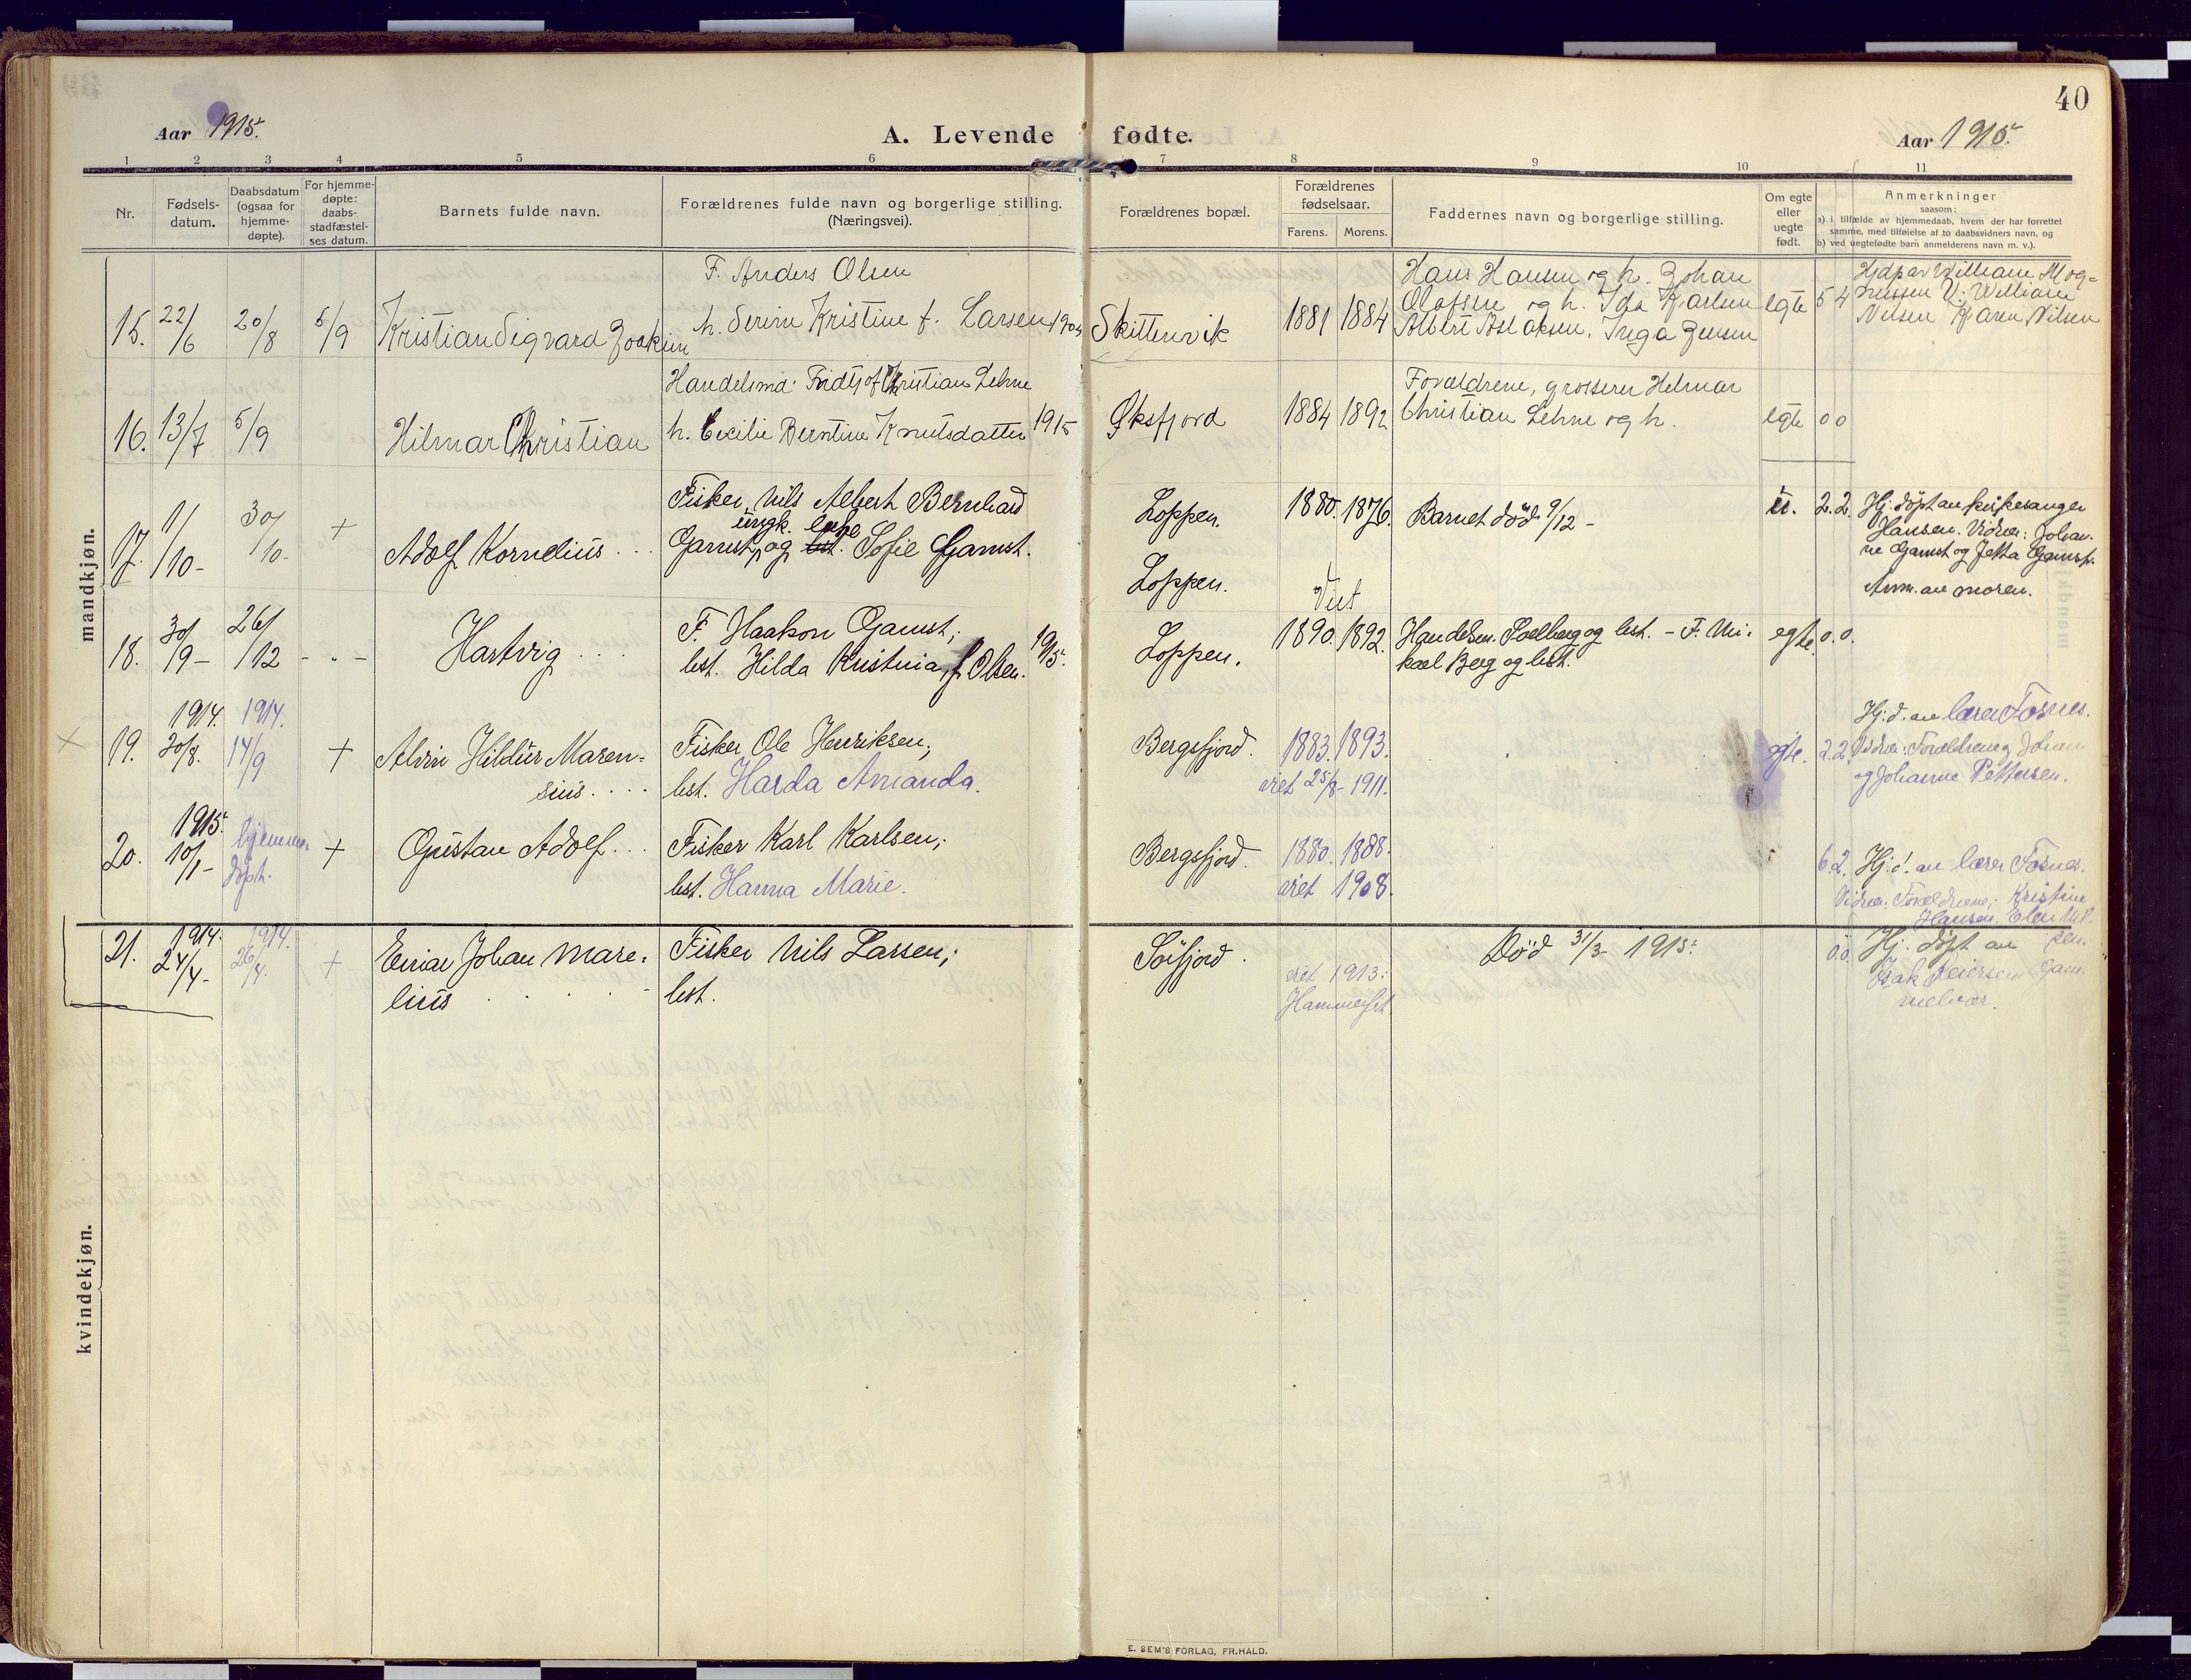 40
Aar 1915.
A. Levende fødte.
Aar 1915.
1 2 3 4 5 6 7 8 9 10 11
Nr.
Fødsels-
datum.
Daabsdatum
(ogsaa for
hjemme-
døpte).
For hjemme-
døpte:
daabs-
stadfæstel-
ses datum.
Barnets fulde navn.
Forældrenes fulde navn og borgerlige stilling.
(Næringsvei).
Forældrenes bopæl.
Forældrenes
fødselsaar.
Farens. Morens.
Faddernes navn og borgerlige stilling.
Om egte
eller
uegte
født.
Anmerkninger
saasom:
a) i tilfælde av hjemmedaab, hvem der har forrettet
samme, med tilføielse af to daabsvidners navn, og
b) ved uegtefødte barn anmelderens navn m. v.).
mandkjøn.
15. 22/6 20/8 5/9 Kristian Sigvard Joakim
F. Anders Olsen
h. Serine Kristine f. Larsen 1904
Skittenvik 1881 1884
Hans Hansen og h. Johan
Olofsen og h. Ida Karlsen
Albert Aslaksen, Inga Jensen
egte 5 4
Hjdp av William Mog-
nussen V: William
Nilsen Karen Nilsen
16. 13/7 5/9 Hilmar Christian
Handelsmd. Fridtjof Christian Lehne
h. Cecilie Berntine Knutsdatter 1915
Øksfjord 1884 1892
Forældrene, grosserer Helmar
Christian Lehne og h.
egte 0 0
17. 1/10- 30/10- + Adolf Kornelius . . .
Fisker Nils Albert Bernhard
Gamst, og Sofie Gamst.
Loppen. 1880. 1876.
Loppen.
Barnet död 9/12 -
u. 2.2.
Hj. döpt av kirkesanger
Hansen. Vidner: Johan-
ne Gamst og Jetta Gamst.
Anm. av moren.
18. 30/9- 26/12 - . - Hartvig . . .
F. Haakon Gamst,
lest. Hilda Kristina, f. Olsen. 1915.
Viet
Loppen. 1890. 1892.
Handelsm. Soelberg og lest. - F. Mi-
kael Berg og lest.
egte. 0.0.
19. 1914. 30/8. 1914. 14/9 + Alvin Hildur Maren-
sius . . . .
Fisker Ole Henriksen,
lest. Harda Amanda.
Bergsfjord. 1883. 1893.
viet 25/8- 1911.
egte. 2.2
Hj. d. av lærer Fosnes.
Vidner: Forældrene, Johan
og Johanne Pettersen.
20. 1915. 10/1- hjemme-
döpt. + Gustav Adolf . . .
Fisker Karl Karlsen,
lest. Hanna Marie.
Bergsfjord. 1880. 1888.
viet 1908.
6 2.
Hj. d. av lærer Fosnes.
Vidner: Forældrene, Kristine
Hansen. Elen Nil-
sen.
21. 1914. 24/4- 1914. 26/4. + Einar Johan Mare-
lius . . . . -
Fisker Nils Larsen;
lest.
Sörfjord.
viet 1913:
Hammerfest.
Död 31/3- 1915.
0.0.
Hj. döpt av
Isak Reiersen Gam-
melvær.
kvindekjøn.
E. SEM'S FORLAG, FR.HALD.